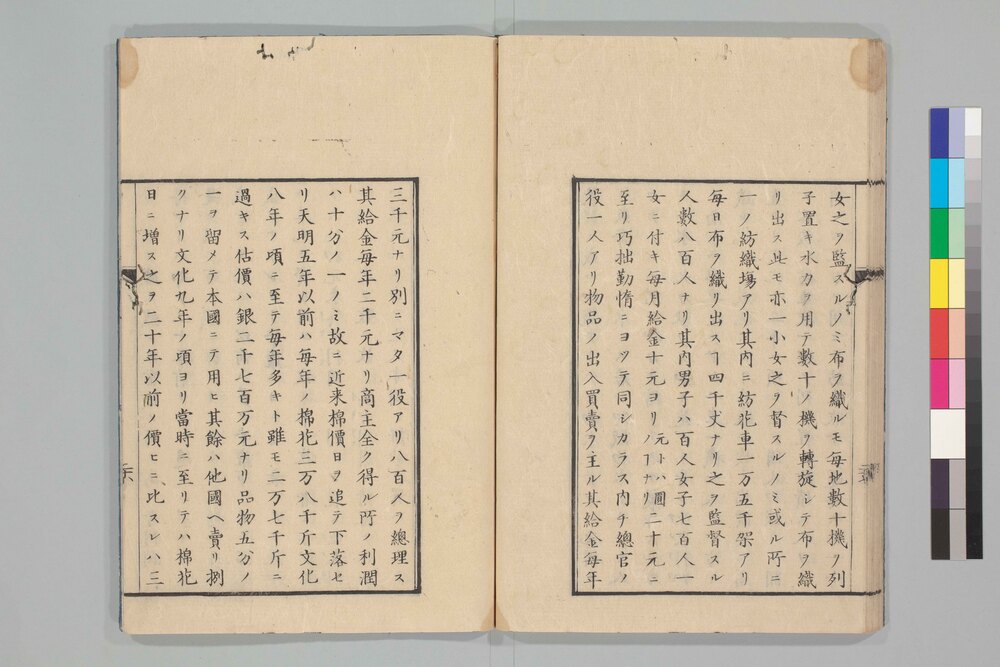 女之ヲ監スルノミ布ヲ織ルモ毎地數十機ヲ列
子置キ水力ヲ用テ數十ノ機ヲ轉旋シテ布ヲ織
リ出ス此モ亦一小女之ヲ督スルノミ或ル所ニ
一ノ紡織塲アリ其内ニ紡花車一万五千架アリ
毎日布ヲ織リ出スヿ四千丈ナリ之ヲ監督スル
人數八百人ナリ其内男子ハ百人女子七百人一
女ニ付キ毎月給金十元ヨリ元トハ圓ノヿナリ二十元ニ
至リ巧拙勤惰ニヨツテ同シカラス内チ總官ノ
役一人アリ物品ノ出入買賣ヲ主ル其給金毎年
三千元ナリ別ニマタ一役アリ八百人ヲ總理ス
其給金毎年二千元ナリ商主全ク得ル所ノ利潤
ハ十分ノ一ノミ故ニ近来棉價日ヲ追テ下落セ
リ天明五年以前ハ毎年ノ棉花三万八千斤文化
八年ノ頃ニ至テ毎年多キト雖モ二万七千斤ニ
過キス估價ハ銀二千七百万元ナリ品物五分ノ
一ヲ留メテ本國ニテ用ヒ其餘ハ他國ヘ賣リ捌
クナリ文化九年ノ頃ヨリ當時ニ至リテハ棉花
日ニ増ス之ヲ二十年以前ノ價ヒニ比スレハ三